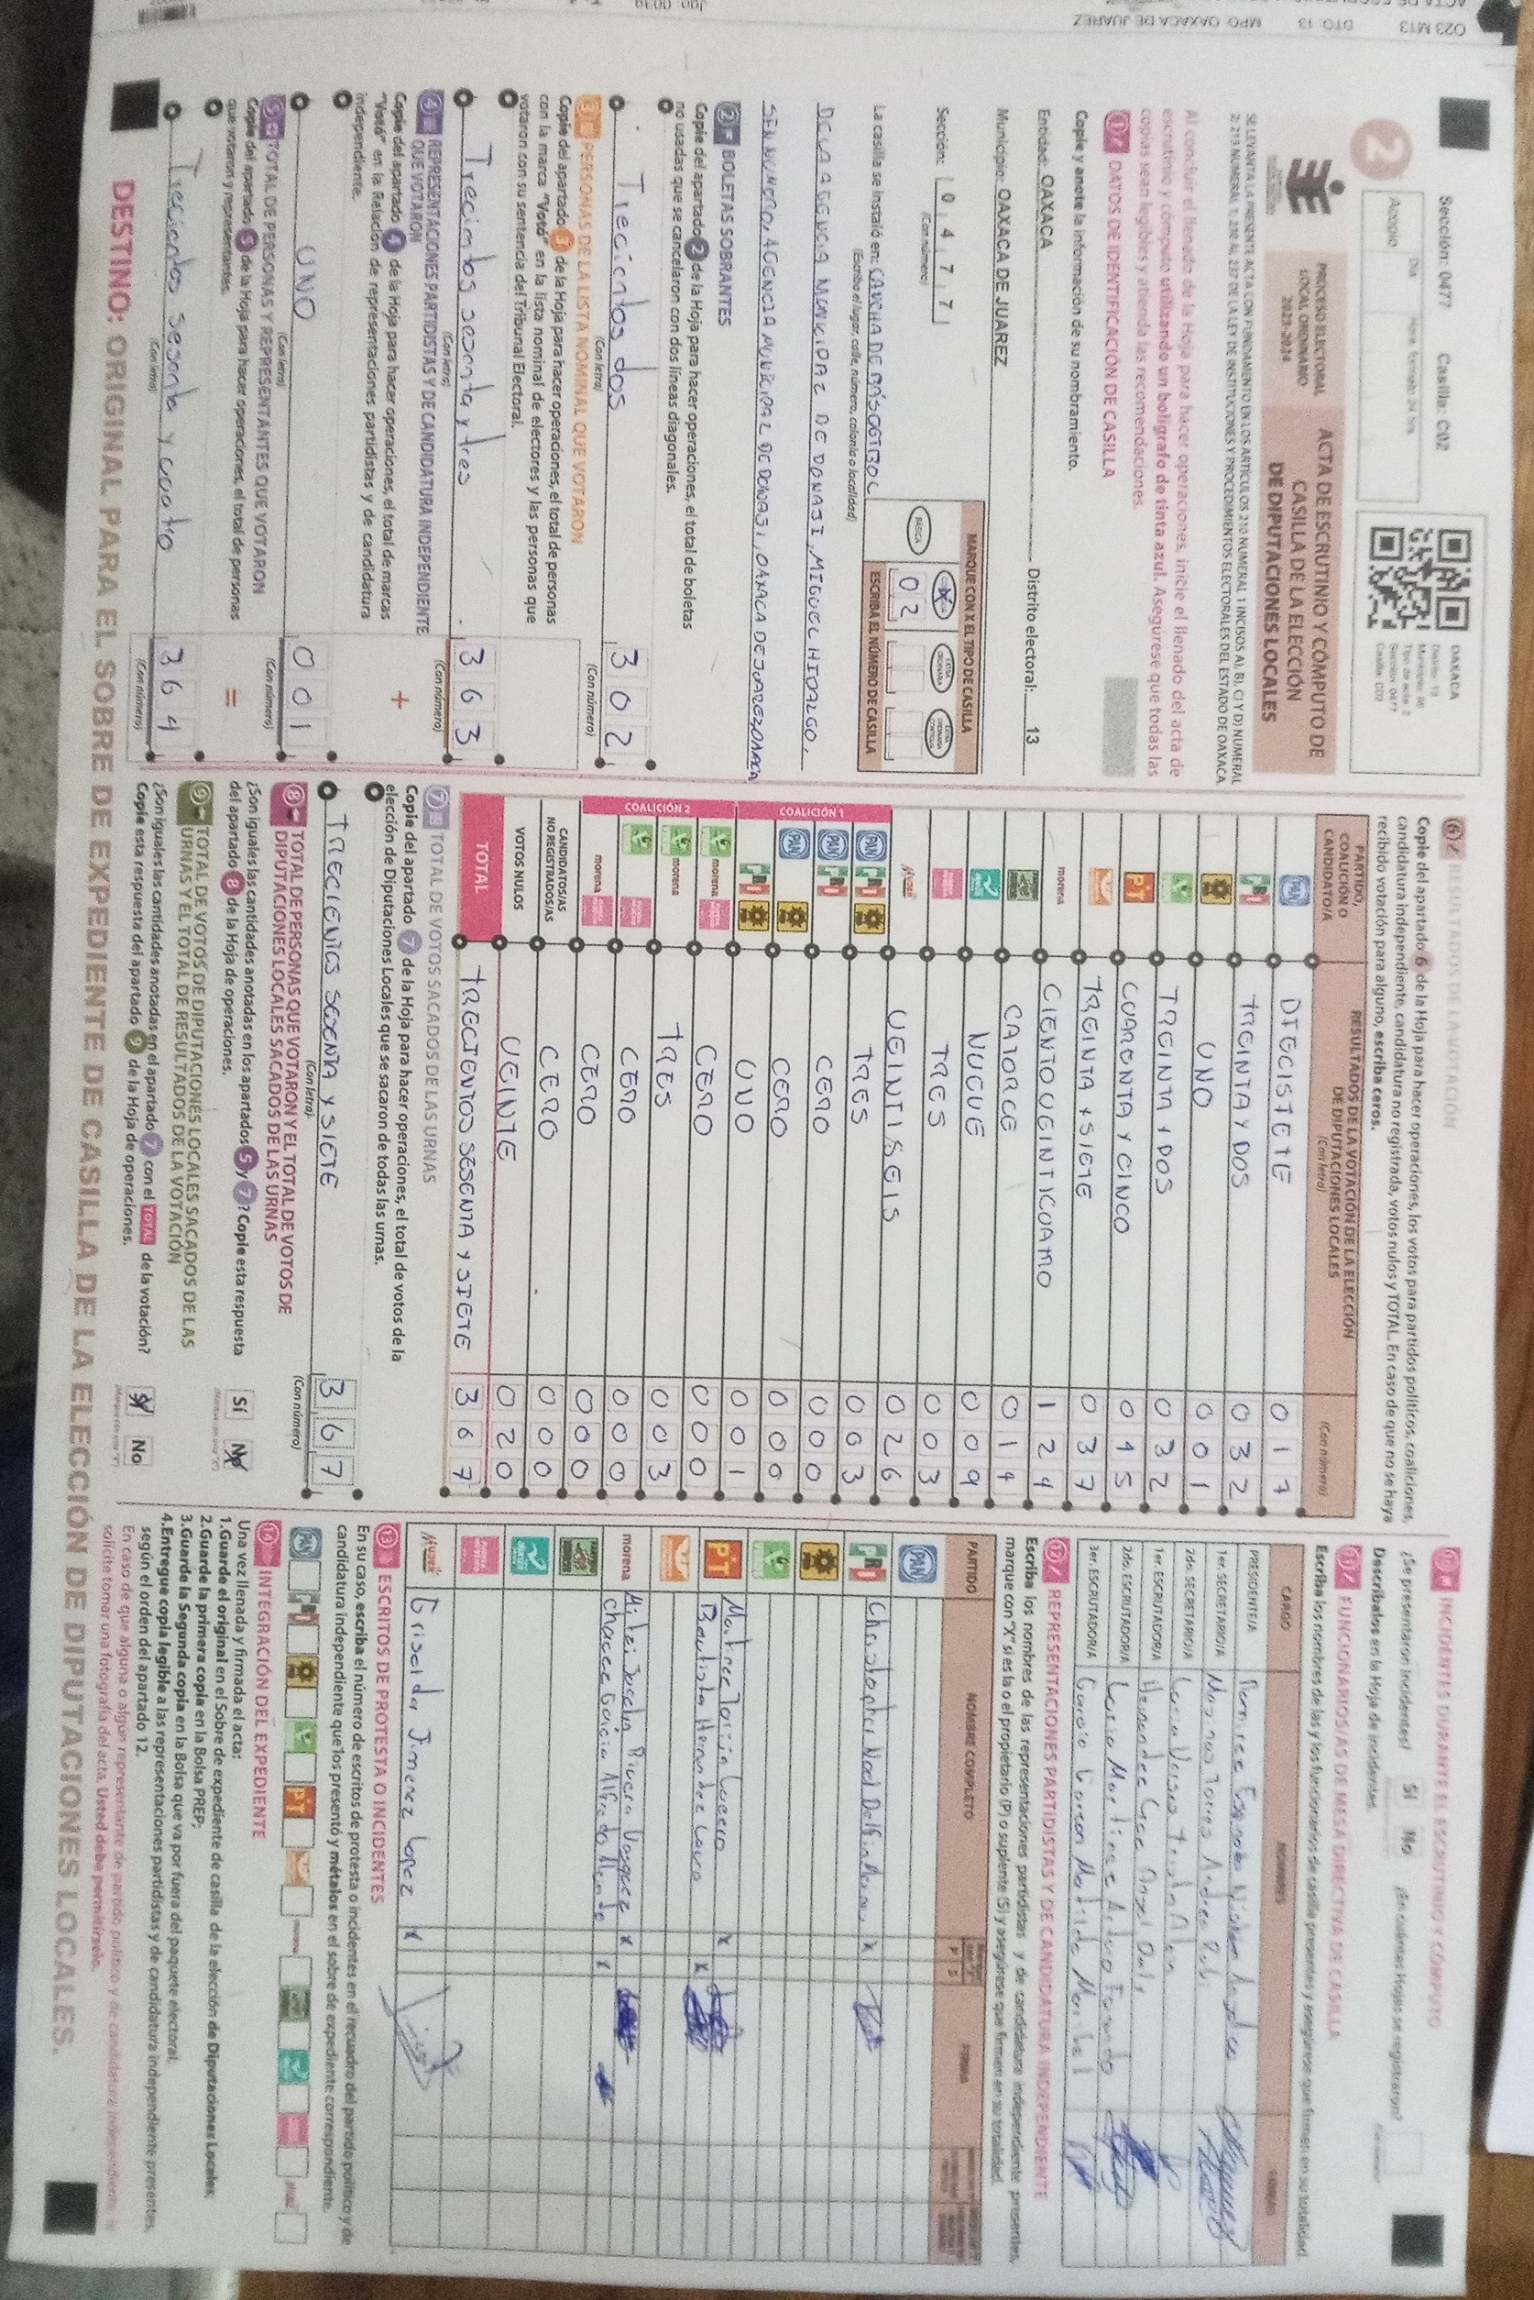 Sección: 0477 Casilla: C02
2
Acopio
Día
Hora, formato 24 hrs
OAXACA
Sección: 0477
Casilla: C02
PROCESO ELECTORAL
LOCAL ORDINARIO
2023-2024
ACTA DE ESCRUTINIO Y CÓMPUTO DE
CASILLA DE LA ELECCIÓN
DE DIPUTACIONES LOCALES
Al concluir el llenado de la Hoja para hacer operaciones, inicie el llenado del acta de
escrutinio y cómputo utilizando un bolígrafo de tinta azul. Asegúrese que todas las
copias sean legibles y atienda las recomendaciones.
1 DATOS DE IDENTIFICACIÓN DE CASILLA
Copie y anote la información de su nombramiento.
Entidad: OAXACA Distrito electoral: 13
Municipio: OAXACA DE JUAREZ
Sección: 0 4 7 7
(Con número)
MARQUE CON X EL TIPO DE CASILLA
BÁSICA X
ESCRIBA EL NÚMERO DE CASILLA
0 2
La casilla se instaló en: CANCHA DE BÁSQGTBOL
(Escriba el lugar, calle, número, colonia o localidad)
DE LA AGENCIA MUNICIPAL DE DONAJI, MIGUEL HIDALGO,
SEN NUMERO, AGENCIA MUNICIPAL DE DONAJI, OAXACA DE JUAREZ, OAXACA
2 BOLETAS SOBRANTES
Copie del apartado 2 de la Hoja para hacer operaciones, el total de boletas
no usadas que se cancelaron con dos líneas diagonales.
Trecientos dos 3 0 2
(Con letra) (Con número)
3 PERSONAS DE LA LISTA NOMINAL QUE VOTARON
Copie del apartado 3 de la Hoja para hacer operaciones, el total de personas
con la marca "Votó" en la lista nominal de electores y las personas que
votaron con su sentencia del Tribunal Electoral.
Trecintos sesenta y tres 3 6 3
(Con letra) (Con número)
4 REPRESENTACIONES PARTIDISTAS Y DE CANDIDATURA INDEPENDIENTE
QUE VOTARON
Copie del apartado 4 de la Hoja para hacer operaciones, el total de marcas
"Votó" en la Relación de representaciones partidistas y de candidatura
independiente.
+
UNO 0 0 1
(Con letra) (Con número)
5 TOTAL DE PERSONAS Y REPRESENTANTES QUE VOTARON
Copie del apartado 5 de la Hoja para hacer operaciones, el total de personas
que votaron y representantes.
=
Trecientos sesenta y cuatro 3 6 4
(Con letra) (Con número)
6 RESULTADOS DE LA VOTACIÓN
Copie del apartado 6 de la Hoja para hacer operaciones, los votos para partidos políticos, coaliciones,
candidatura independiente, candidatura no registrada, votos nulos y TOTAL. En caso de que no se haya
recibido votación para alguno, escriba ceros.
PARTIDO,
COALICIÓN O
CANDIDATO/A
RESULTADOS DE LA VOTACIÓN DE LA ELECCIÓN
DE DIPUTACIONES LOCALES
(Con letra)
(Con número)
PAN DIECISIETE 0 1 7
PRI TREINTA Y DOS 0 3 2
UNO 0 0 1
TREINTA Y DOS 0 3 2
PT CUARENTA Y CINCO 0 4 5
TREINTA Y SIETE 0 3 7
morena CIENTO VEINTICUATRO 1 2 4
CATORCE 0 1 4
NUEVE 0 0 9
TRES 0 0 3
MUJER VEINTISEIS 0 2 6
COALICIÓN 1
PAN PRI TRES 0 0 3
PAN PRI CERO 0 0 0
PAN CERO 0 0 0
PRI UNO 0 0 1
COALICIÓN 2
morena CERO 0 0 0
morena TRES 0 0 3
CERO 0 0 0
morena CERO 0 0 0
CANDIDATOS/AS
NO REGISTRADOS/AS CERO 0 0 0
VOTOS NULOS VEINTE 0 2 0
TOTAL TRECIENTOS SESENTA Y SIETE 3 6 7
7 TOTAL DE VOTOS SACADOS DE LAS URNAS
Copie del apartado 7 de la Hoja para hacer operaciones, el total de votos de la
elección de Diputaciones Locales que se sacaron de todas las urnas.
TRECIENTOS SESENTA Y SIETE 3 6 7
(Con letra) (Con número)
8 TOTAL DE PERSONAS QUE VOTARON Y EL TOTAL DE VOTOS DE
DIPUTACIONES LOCALES SACADOS DE LAS URNAS
¿Son iguales las cantidades anotadas en los apartados 5 y 7? Copie esta respuesta
del apartado 8 de la Hoja de operaciones.
Sí No
9 TOTAL DE VOTOS DE DIPUTACIONES LOCALES SACADOS DE LAS
URNAS Y EL TOTAL DE RESULTADOS DE LA VOTACIÓN
¿Son iguales las cantidades anotadas en el apartado 7 con el TOTAL de la votación?
Copie esta respuesta del apartado 9 de la Hoja de operaciones.
Sí No
10 INCIDENTES DURANTE EL ESCRUTINIO Y CÓMPUTO
¿Se presentaron incidentes? Sí No ¿En cuántas Hojas se registraron?
Descríbalos en la Hoja de incidentes.
11 FUNCIONARIOS/AS DE MESA DIRECTIVA DE CASILLA
Escriba los nombres de las y los funcionarios de casilla presentes y asegúrese que firmen en su totalidad.
CARGO NOMBRES FIRMAS
PRESIDENTE/A
1er. SECRETARIO/A
2do. SECRETARIO/A
1er. ESCRUTADOR/A
2do. ESCRUTADOR/A
3er. ESCRUTADOR/A
12 REPRESENTACIONES PARTIDISTAS Y DE CANDIDATURA INDEPENDIENTE
Escriba los nombres de las representaciones partidistas y de candidatura independiente presentes,
marque con "X" si es la o el propietario (P) o suplente (S) y asegúrese que firmen en su totalidad.
PARTIDO NOMBRE COMPLETO P S FIRMA
PAN
PRI
PT
Bautista Hernandez Laura x
morena
MUJER Griselda Jimenez Lopez x
13 ESCRITOS DE PROTESTA O INCIDENTES
En su caso, escriba el número de escritos de protesta o incidentes en el recuadro del partido político y de
candidatura independiente que los presentó y métalos en el sobre de expediente correspondiente.
14 INTEGRACIÓN DEL EXPEDIENTE
Una vez llenada y firmada el acta:
1.Guarde el original en el Sobre de expediente de casilla de la elección de Diputaciones Locales;
2.Guarde la primera copia en la Bolsa PREP;
3.Guarde la Segunda copia en la Bolsa que va por fuera del paquete electoral;
4.Entregue copia legible a las representaciones partidistas y de candidatura independiente presentes,
según el orden del apartado 12.
En caso de que alguna o algún representante de partido político y de candidatura independiente le
solicite tomar una fotografía del acta, Usted debe permitírselo.
DESTINO: ORIGINAL PARA EL SOBRE DE EXPEDIENTE DE CASILLA DE LA ELECCIÓN DE DIPUTACIONES LOCALES.